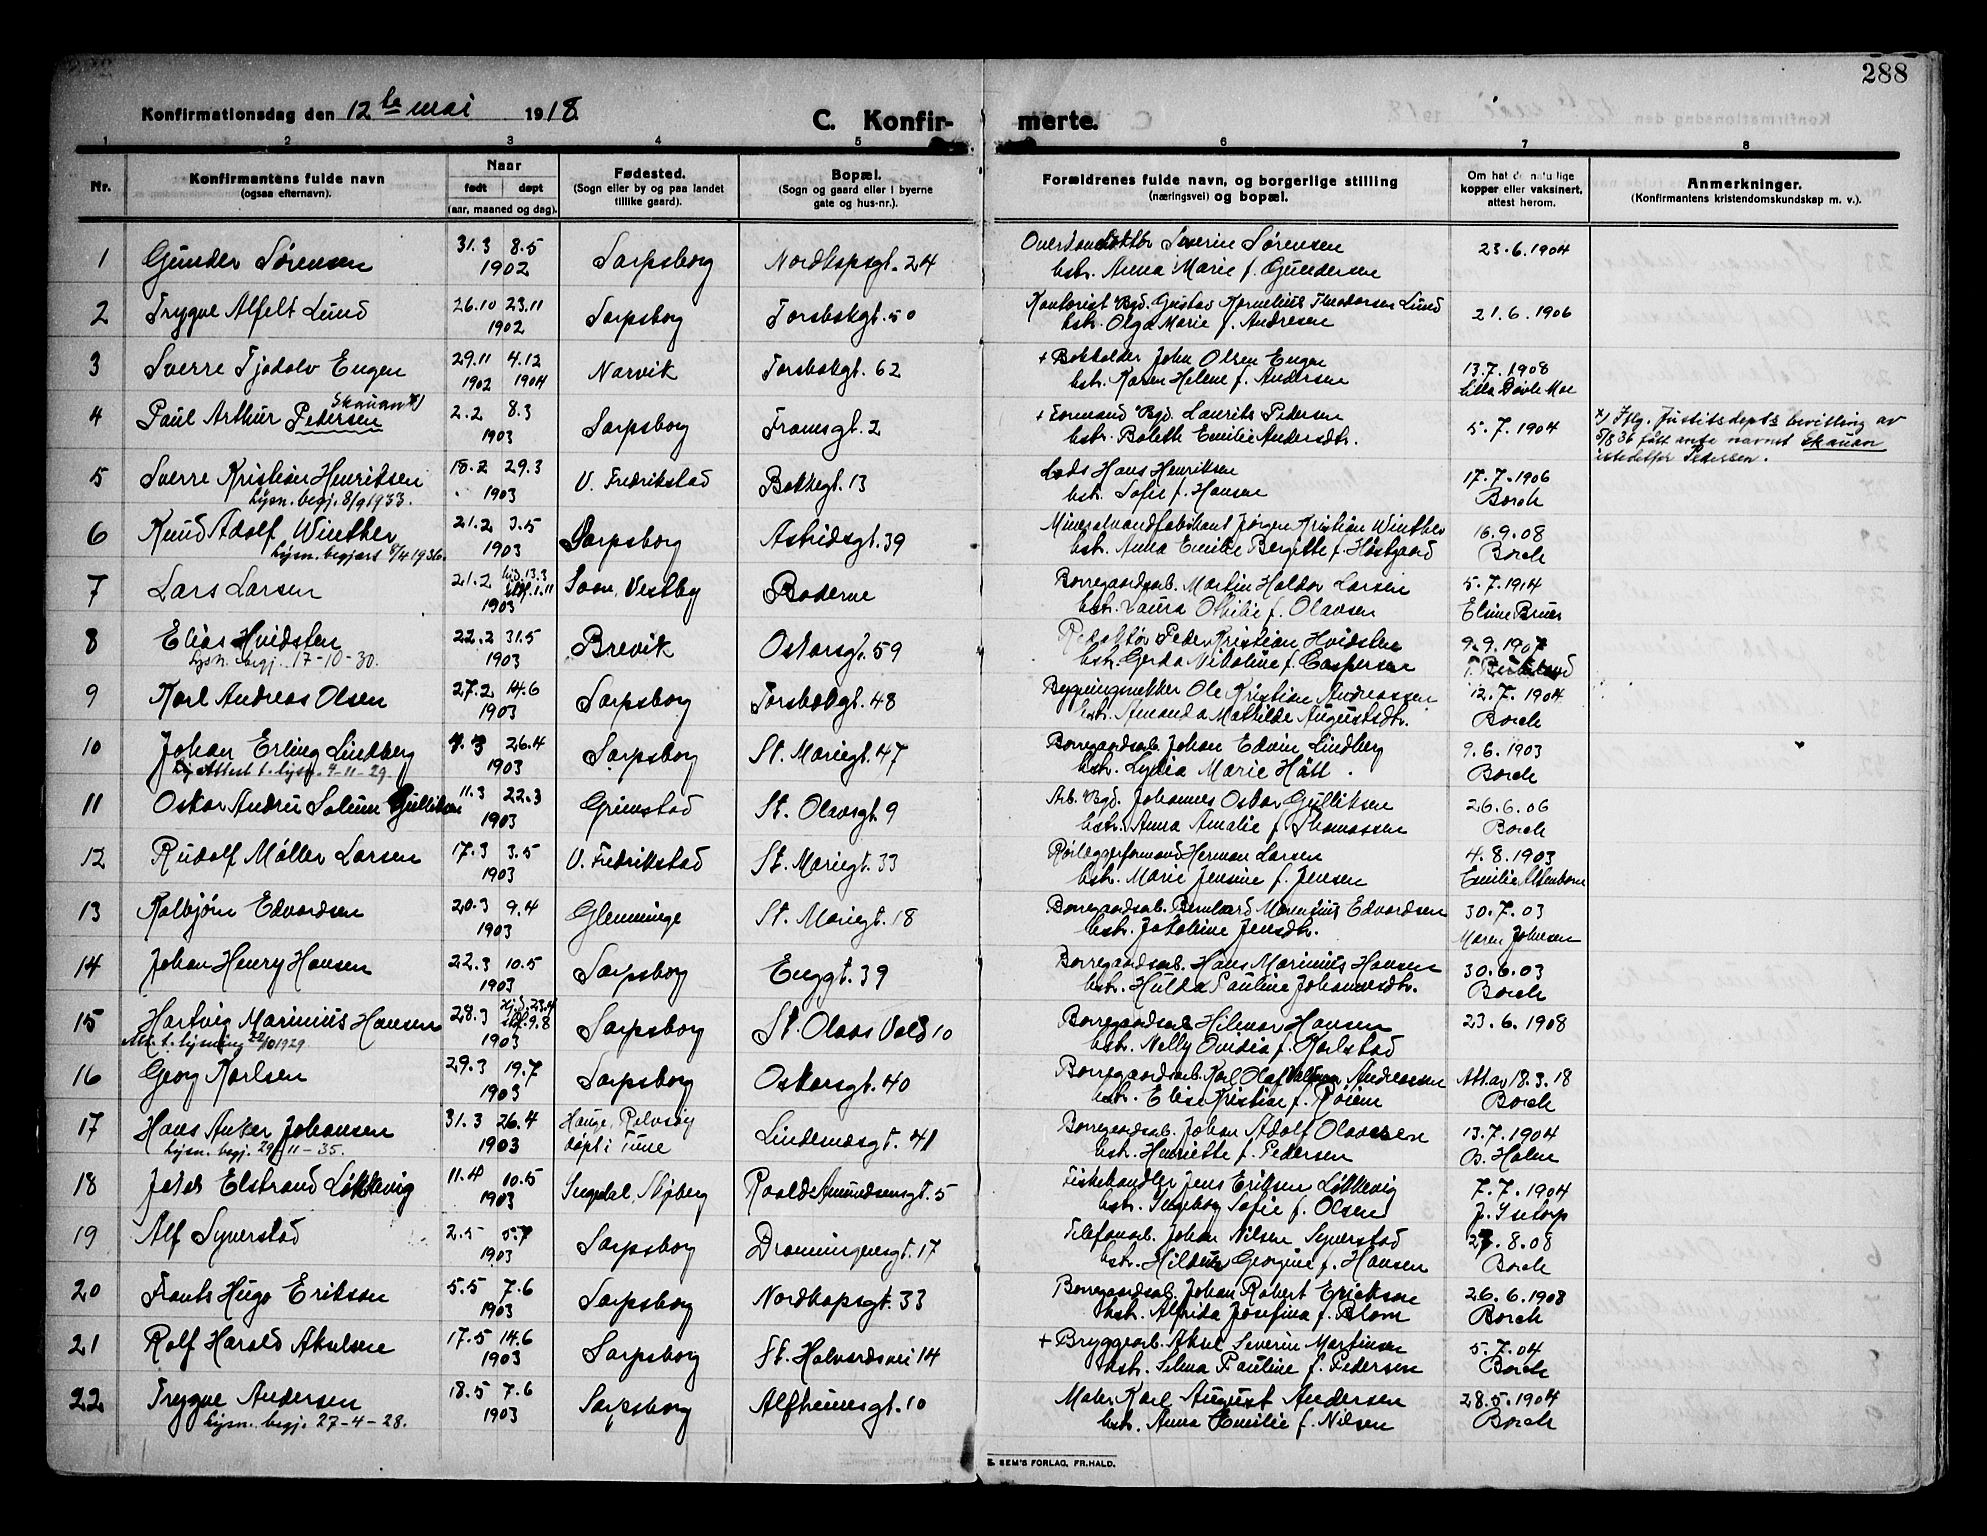 288
Konfirmationsdag den 12te mai 1918.
C. Konfir-merte.
1 2 3 4 5 6 7 8
Nr.
Konfirmantens fulde navn
(ogsaa efternavn).
Naar
født døpt
(aar, maaned og dag).
Fødested.
(Sogn eller by og paa landet
tillike gaard).
Bopæl.
(Sogn og gaard eller i byerne
gate og hus-nr.).
Forældrenes fulde navn, og borgerlige stilling
(næringsvei) og bopæl.
Om hat de naturlige
kopper eller vaksinert,
attest herom.
Anmerkninger.
(Konfirmantens kristendomskundskap m. v.).
1 Gunder Sørensen 31.3 8.5 1902 Sarpsborg Nordkapsgt. 24
Severin Sørensen 23.6.1904
hstr. Anna Marie f. Gundersen
2 Trygve Alfelt Lund 26.10 23.11 1902 Sarpsborg Torsbekgt. 50
Kontorist Bgd. Gustav Kornelius Theodorsen Lund 21.6.1906
hstr. Olga Marie f. Andresen
3 Sverre Tjodolv Engen 29.11 1902 4.12 1904 Narvik Torsbekgt. 62
+ Bokholder John Olsen Engen 13.7.1908
hstr. Karen Helene f. Andersen
Skauan x)
4 Paul Arthur Petersen 2.2 8.3 1903 Sarpsborg Framsgt. 2
+ Formand Bgd. Laurits Pedersen 5.7.1904
hstr. Boleth Emilie Andersdtr.
x) Iflg. Justitsdepts bevilling av
5/8 36 fått anta navnet Skauan
istedetfor Petersen.
5 Sverre Kristian Henriksen 18.2 29.3 1903 V. Fredrikstad Bakkegt. 13
Lysn. begj. 8/9 1933.
Lods Hans Henriksen 17.7.1906
hstr. Sofie f. Hansen Borch
6 Knud Adolf Winther 21.2 3.5 1903 Sarpsborg Astridsgt. 39
Lysn. begjært 6/4 1936.
Mineralvandfabrikant Jørgen Kristian Winther 16.9.08
hstr. Anna Emilie Bergitte f. Høstgaard Borch
7 Lars Larsen 21.2 1903 Soon, Vestby Boderne
Borregaardsarb. Martin Haldor Larsen 5.7.1914
hstr. Laura Othilie f. Olavsen
8 Elias Hvidsten 22.2 31.5 1903 Brevik Oskarsgt. 59
Lysn. begj. 17-10-30.
Redaktør Peder Kristian Hvidsten 9.9.1907
hstr. Gerda Nikoline f. Caspersen
9 Karl Andreas Olsen 27.2 14.6 1903 Sarpsborg Torsbekgt. 48
Ole Kristian Andreassen 12.7.1904
hstr. Amanda Mathilde Augustsdtr. Borch
10 Johan Erling Lindberg 26.4 1903 Sarpsborg St. Mariegt. 47
Attest t. lysn. 4-11-29.
Borregaardsarb. Johan Edvin Lindberg 9.6.1903
hstr. Lydia Marie Hått. Borch
11 Oskar Andreé Solum Gulliksen 11.3 22.3 1903 Grimstad St. Olavsgt. 9
Arb. Bgd. Johannes Oskar Gulliksen 26.6.06
hstr. Anna Amalie f. Thomassen Borch
12 Rudolf Møller Larsen 17.3 3.5 1903 V. Fredrikstad St. Mariegt. 33
Rørlæggerformand Herman Larsen 4.8.1903
hstr. Marie Jensine f. Jensen Emilie Altenborn
13 Kolbjørn Edvardsen 20.3 9.4 1903 Glemminge St. Mariegt. 18
Borregaardsarb. Bernhard Marensius Edvardsen 30.7.03
hstr. Jakobine Jensdtr. Maren Johnsen
14 Johan Henry Hansen 22.3 10.5 1903 Sarpsborg Enggt. 39
Borregaardsarb. Hans Marinius Hansen 30.6.03
hstr. Hulda Pauline Johannesdtr. Borch
15 Hartvig Marinius Hansen 28.3 1903 Sarpsborg St. Olavs Vold 10
Att. t. lysning 22/10 1929.
Borregaardsarb. Hilmar Hansen 23.6.1908
hstr. Nelly Ovidia f. Karlstad
16 Georg Karlsen 29.3 19.7 1903 Sarpsborg Oskarsgt. 40
Borregaardsarb. Karl Olaf Andreassen Att. av 18.3.18
hstr. Elise Kristine f. Røien Borch
17 Hans Anker Johansen 31.3 26.4 1903 Hauge, Rolvsøy døpt i Tune Lindemansgt. 41
Lysn. begj. 29/11-35.
Borregaardsarb. Johan Adolf Olavesen 13.7.1904
hstr. Henriette f. Pedersen B. Holm
18 Elstrand Løkkevig 11.4 10.5 1903 Ingedal, Skjeberg Roald Amundsensgt. 5
Fiskehandler Jens Eriksen Løkkevig 7.7.1904
hstr. Ingeborg Sofie f. Olsen
19 Alf Syverstad 2.5 5.7 1903 Sarpsborg Dronningensgt. 17
Telefonarb. Johan Nilsen Syverstad 27.8.08
hstr. Georgine f. Hansen Borch
20 Frants Hugo Eriksen 5.5 7.6 1903 Sarpsborg Nordkapsgt. 33
Borregaardsarb. Johan Robert Ericksen 26.6.1908
hstr. Alfrida Josefina f. Blom Borch
21 Rolf Harald Akselsen 17.5 14.6 1903 Sarpsborg St. Halvardsvei 14
+ Bryggearb. Aksel Severin Martinsen 5.7.04
hstr. Selma Pauline f. Pedersen Borch
22 Trygve Andersen 18.5 7.6 1903 Sarpsborg Alfheimsgt. 10
Lysn. begj. 27-4-28.
Maler Karl August Andersen 28.5.1904
hstr. Anna Emilie f. Nilsen Borch
E. SEM'S FORLAG, FR.HALD.